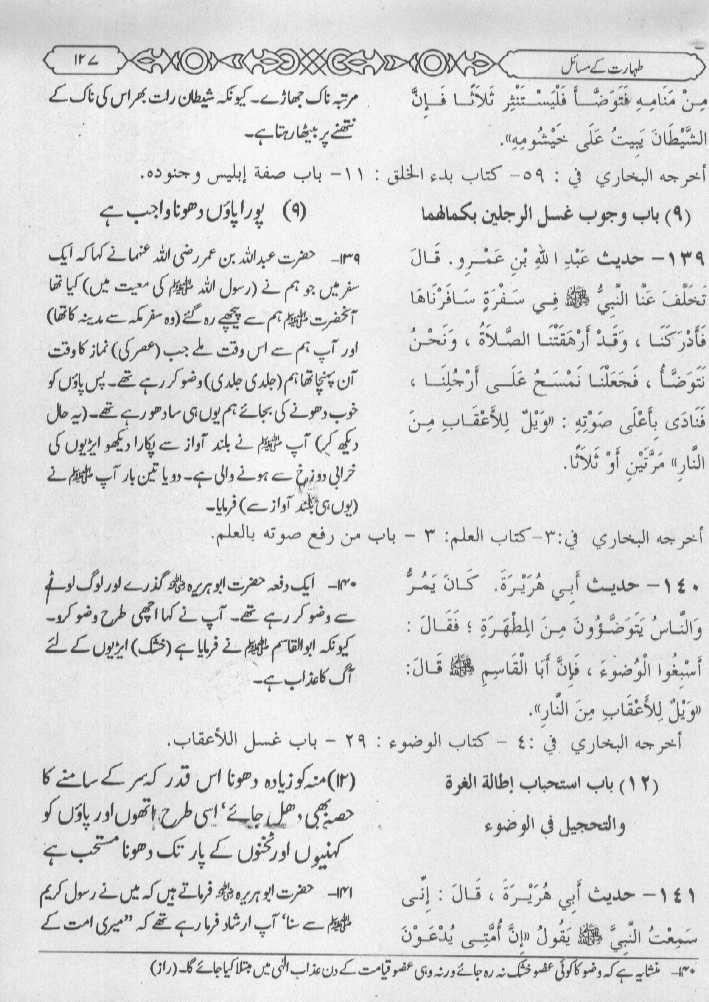 طہارت کے مسائل
۱۲۷
مِنْ مَنَامِهِ فَتَوَضَّأَ فَلْيَسْتَنْثِرْ ثَلَاثًا فَإِنَّ
الشَّيْطَانَ يَبِيتُ عَلَى خَيْشُومِهِ».
مرتبہ ناک جھاڑے۔ کیونکہ شیطان رات بھر اس کی ناک کے
نتھنے پر بیٹھا رہتا ہے۔
أخرجه البخاري في : ٥٩- كتاب بدء الخلق : ١١- باب صفة إبليس وجنوده.
(٩) باب وجوب غسل الرجلين بكمالهما
(۹) پورا پاؤں دھونا واجب ہے
١٣٩- حديث عَبْدِ اللهِ بْنِ عَمْرِو. قَالَ
تَخَلَّفَ عَنَّا النَّبِيُّ ﷺ فِي سَفْرَةٍ سَافَرْنَاهَا
فَأَدْرَكَنَا ، وَقَدْ أَرْهَقَتْنَا الصَّلَاةُ ، وَنَحْنُ
نَتَوَضَّأُ ، فَجَعَلْنَا نَمْسَحُ عَلَى أَرْجُلِنَا ،
فَنَادَى بِأَعْلَى صَوْتِهِ : «وَيْلٌ لِلأَعْقَابِ مِنَ
النَّارِ» مَرَّتَيْنِ أَوْ ثَلَاثًا.
۱۳۹- حضرت عبداللہ بن عمر رضی اللہ عنہما نے کہا کہ ایک
سفر میں جو ہم نے (رسول اللہ ﷺ کی معیت میں) کیا تھا
آنحضرت ﷺ ہم سے پیچھے رہ گئے (وہ سفر مکہ سے مدینہ کا تھا)
اور آپ ہم سے اس وقت ملے جب (عصر کی) نماز کا وقت
آن پہنچا تھا ہم (جلدی جلدی) وضو کر رہے تھے۔ پس پاؤں کو
خوب دھونے کی بجائے ہم یوں ہی سا دھو رہے تھے۔ (یہ حال
دیکھ کر) آپ ﷺ نے بلند آواز سے پکارا دیکھو ایڑیوں کی
خرابی دوزخ سے ہونے والی ہے۔ دو یا تین بار آپ ﷺ نے
(یوں ہی بلند آواز سے) فرمایا۔
أخرجه البخاري في:٣-كتاب العلم: ٣ - باب من رفع صوته بالعلم.
١٤٠- حديث أَبِي هُرَيْرَةَ. كَانَ يَمُرُّ
وَالنَّاسُ يَتَوَضَّؤُونَ مِنَ المِطْهَرَةِ ؛ فَقَالَ :
أَسْبِغُوا الْوُضُوءَ ، فَإِنَّ أَبَا الْقَاسِمِ ﷺ قَالَ:
«وَيْلٌ لِلأَعْقَابِ مِنَ النَّارِ».
۱۴۰- ایک دفعہ حضرت ابو ہریرہ ؓ گذرے اور لوگ لوٹے
سے وضو کر رہے تھے۔ آپ نے کہا اچھی طرح وضو کرو۔
کیونکہ ابوالقاسم ﷺ نے فرمایا ہے (خشک) ایڑیوں کے لئے
آگ کا عذاب ہے۔
أخرجه البخاري في :٤ - كتاب الوضوء : ٢٩ - باب غسل اللأعقاب.
(١٢) باب استحباب إطالة الغرة
والتحجيل في الوضوء
(۱۲) منہ کو زیادہ دھونا اس قدر کہ سر کے سامنے کا
حصہ بھی دھل جائے' اسی طرح ہاتھوں اور پاؤں کو
کہنیوں اور ٹخنوں کے پار تک دھونا مستحب ہے
١٤١- حديث أَبِي هُرَيْرَةَ ، قَالَ : إِنِّي
سَمِعْتُ النَّبِيَّ ﷺ يَقُولُ «إِنَّ أُمَّتِي يُدْعَوْنَ
۱۴۱- حضرت ابو ہریرہ ؓ فرماتے ہیں کہ میں نے رسول کریم
ﷺ سے سنا' آپ ارشاد فرما رہے تھے کہ ”میری امت کے
۱۴۰- منشا یہ ہے کہ وضو کا کوئی عضو خشک نہ رہ جائے ورنہ وہی عضو قیامت کے دن عذاب الٰہی میں مبتلا کیا جائے گا۔ (راز)